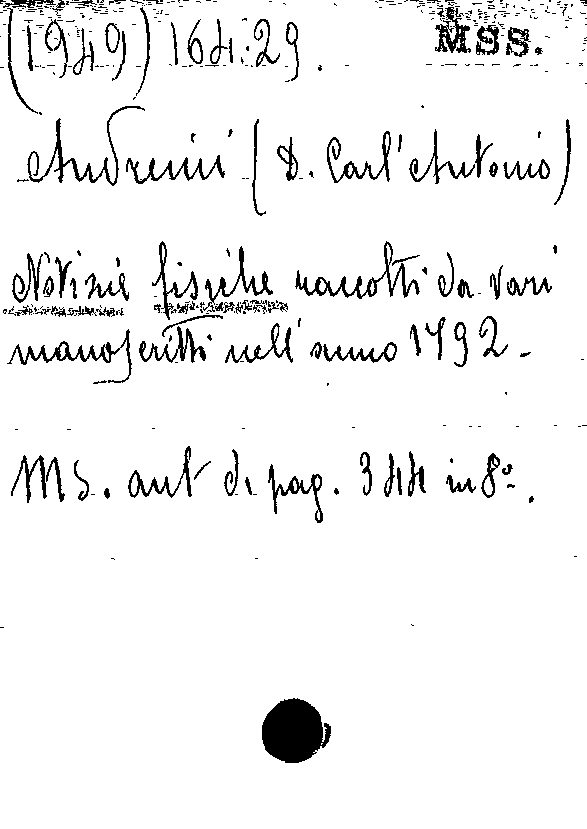 (1949) 164:29. MSS.
Andreini (D. Carl'Antonio)
Notizie fisiche raccolti da vari
manoscritti nell'anno 1792.
MS. aut di pag. 344 in 8º.